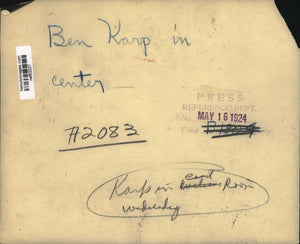 Ben Karp in
center
PRESS
REFERENCE DEPT.
No. MAY 16 1924
#2083
Filed
Karp in court Room
wednesday